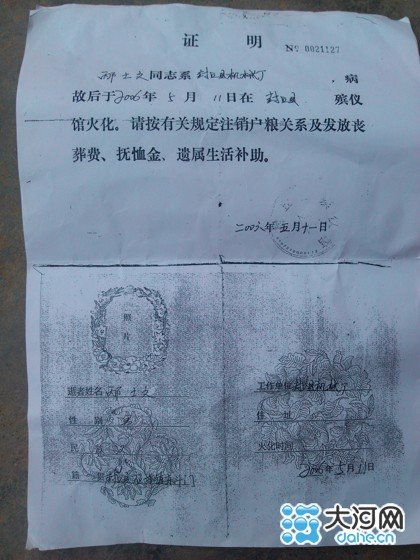 证 明
№ 0021127
士文同志系 封丘县机械厂 ，病
故后于2006年5月11日在 封丘县 殡仪
馆火化。请按有关规定注销户粮关系及发放丧
葬费、抚恤金、遗属生活补助。
二〇〇六年五月十一日
照
片
逝者姓名 士文
性 别
民
工作单位 封丘县机械厂
住 址
火化时间
2006年5月11日
大河网
dahe.cn